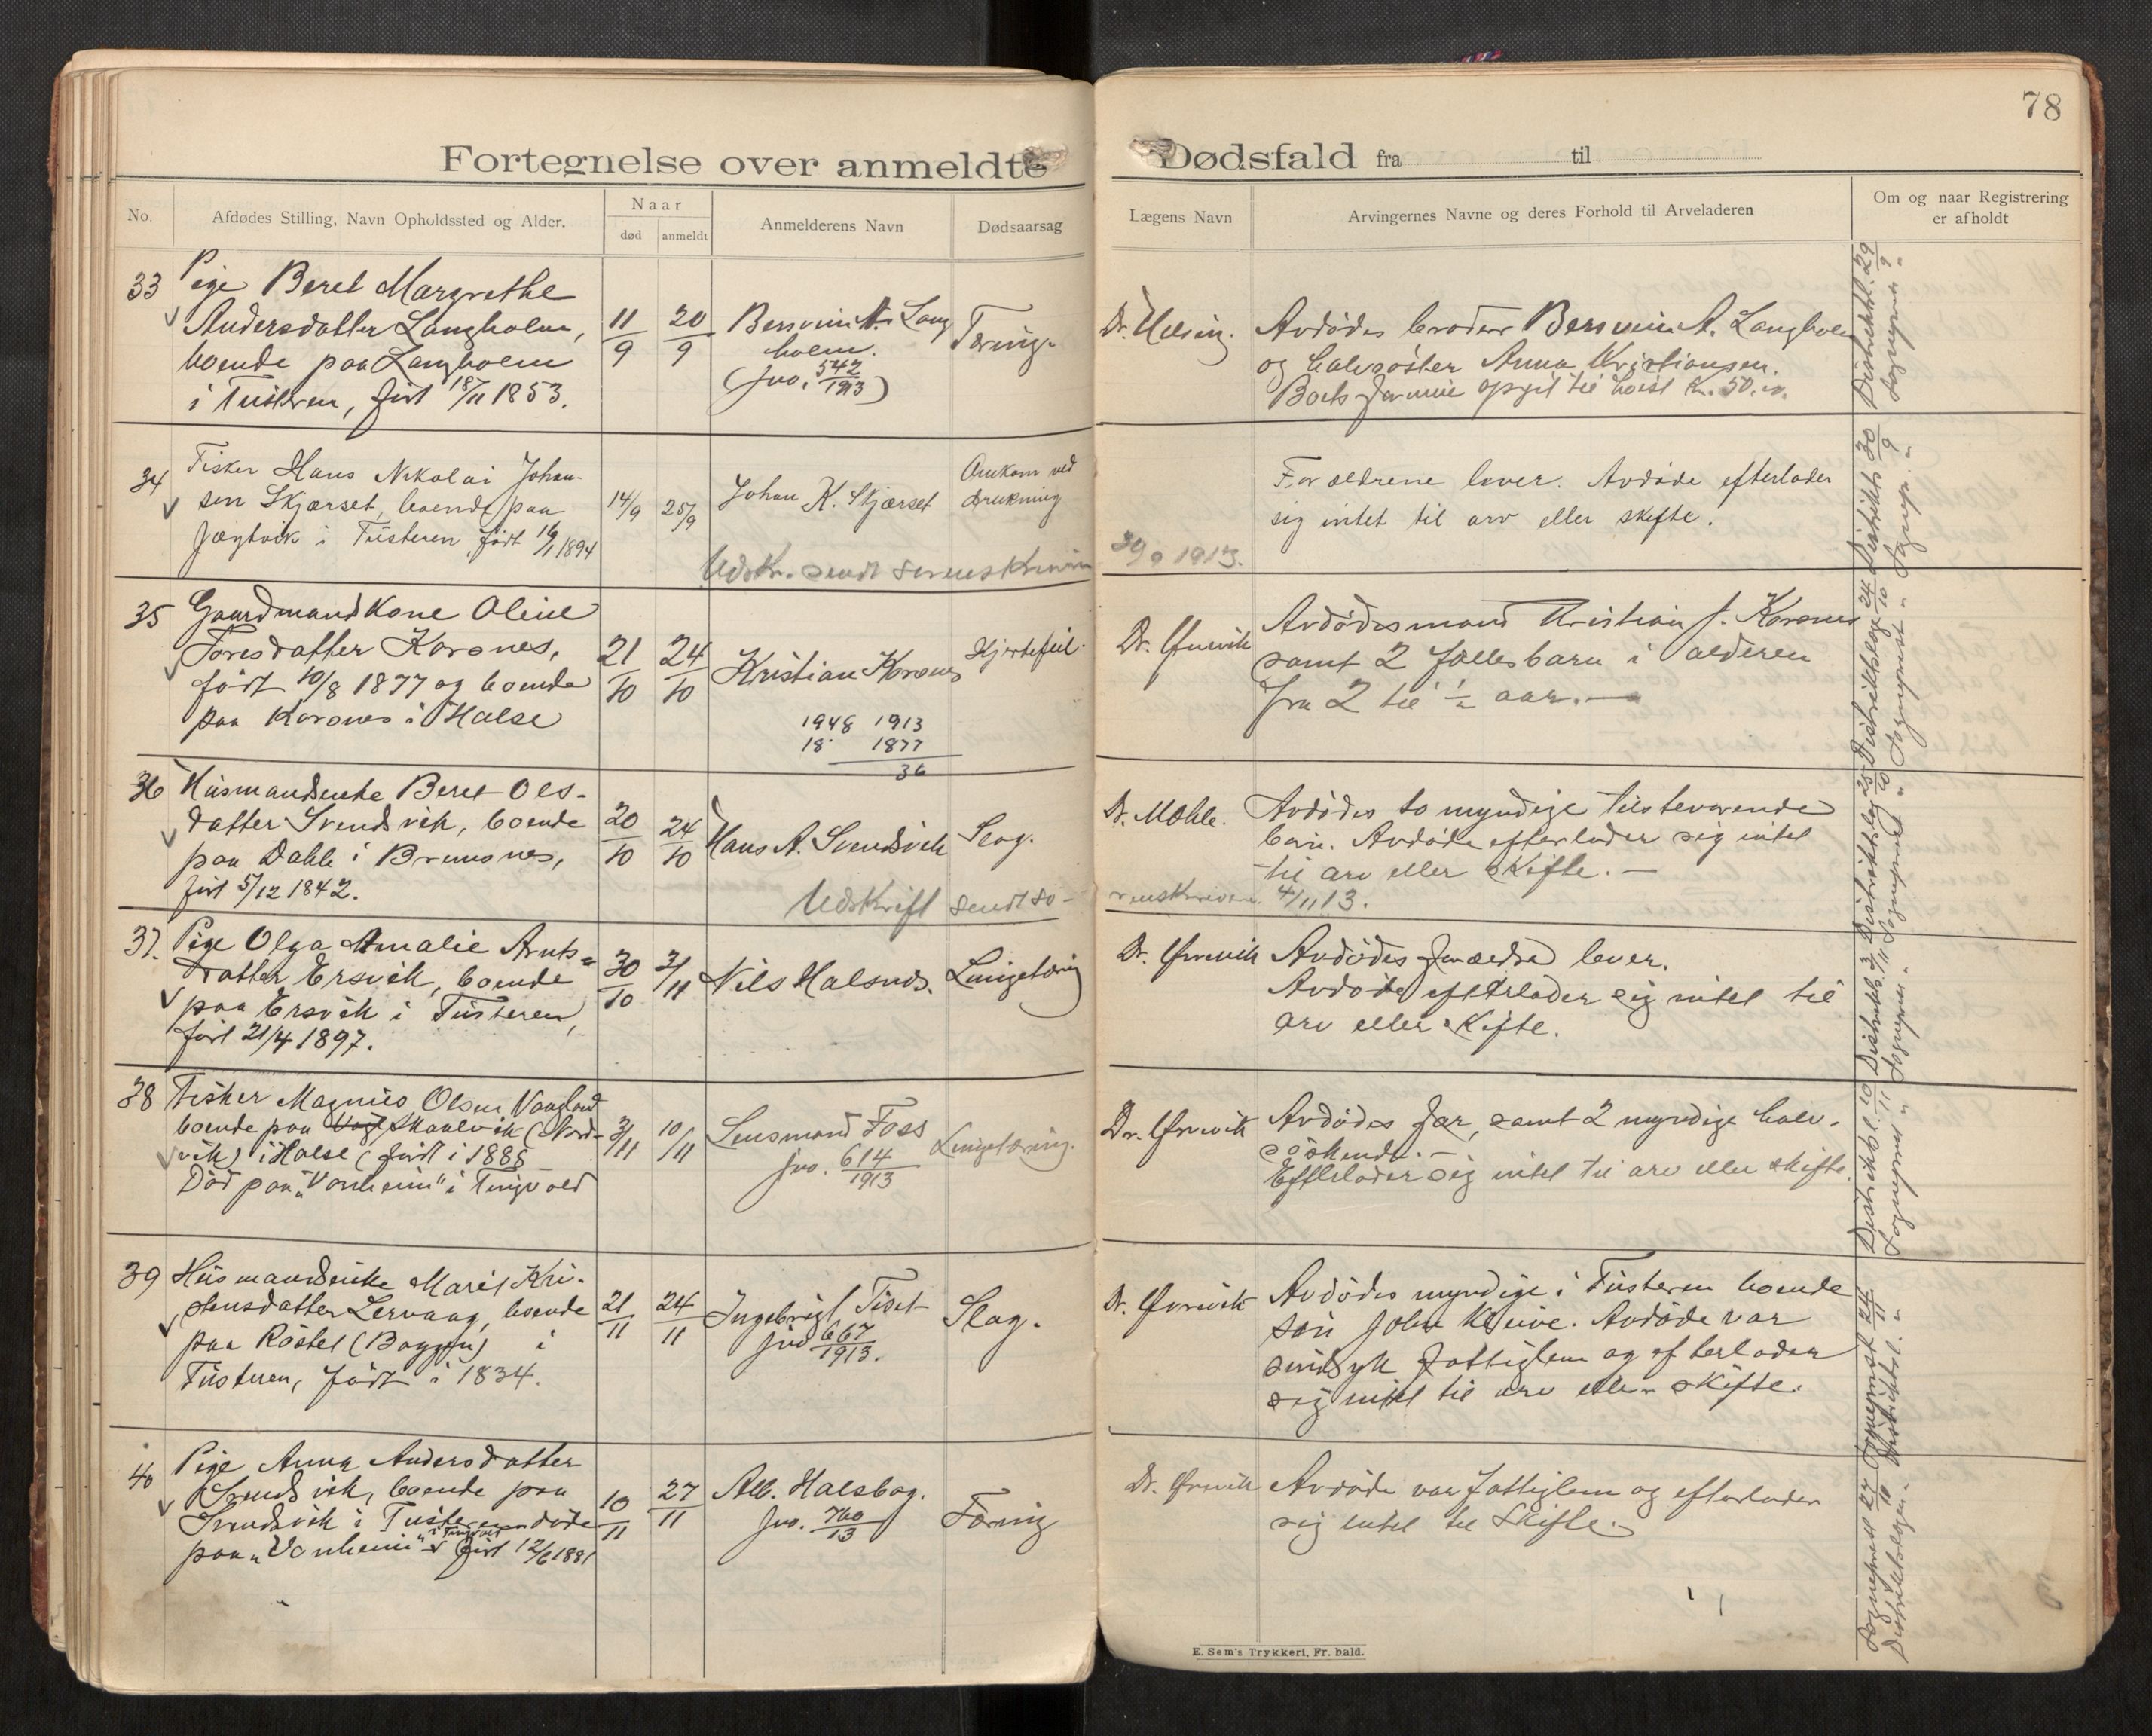 78
Fortegnelse over anmeldte Dødsfald fra til
No.
Afdødes Stilling, Navn Opholdssted og Alder.
Naar
død
anmeldt
Anmelderens Navn
Dødsaarsag
Lægens Navn
Arvingernes Navne og deres Forhold til Arveladeren
Om og naar Registrering
er afholdt
33
Pige Beret Margrethe
Andersdatter Langholm,
boende paa Langholm
i Tusteren, født 18/11 1853.
11/9
20/9
A. Lang
holm.
(Jno. 542/1913)
Tæring.
Avdødes broder A. Langholm
og halvsøster Anna Kristiansen.
Boets formue opgit til høist Kr. 50.
34
Fisker Hans Nikolai Johan-
sen Skjærset, boende paa
Jægtvik i Tusteren, født 1894
14/9
25/9
Johan K. Skjærset
Omkom ved
drukning
Forældrene lever. Avdøde efterlader
sig intet til arv eller skifte.
Udskr. sendt sorenskriveren
30/9 1913.
35
Gaardmandkone Oline
Toresdatter Korsnes,
født 10/8 1877 og boende
paa Korsnes i Halse
21/10
24/10
Kristian Korsnes
Hjertefeil.
1948 1913
18 1877
36
Dr. Ørnvik
Avdødes mand Kristian J. Korsnes
samt 2 fællesbarn i alderen
fra 2 til ½ aar.
36
Husmandsenke Beret Ols-
datter Svendsvik, boende
paa Dahle i Bremsnes,
født 5/12 1842.
20/10
24/10
Hans A. Svendsvik
Slag.
Dr. Mæhle.
Avdødes to myndige tilsteværende
barn. Avdøde efterlader sig intet
til arv eller skifte.
Udskrift sendt so-
renskriveren 4/11 13.
37.
Pige Olga Amalie Arnts-
datter Ersvik, boende
paa Ersvik i Tusteren,
født 21/4 1897.
30/10
3/11
Nils Halsnes.
Lungetæring
Dr. Ørnvik
Avdødes forældre lever.
Avdøde efterlader sig intet til
arv eller skifte.
38
Fisker Magnus Olsen Vaagland
boende paa Skaalvik (Nord-
vik) i Halse (født i 1885
Død paa "Vonheim" i Tingvold
3/11
10/11
Lensmand Foss
Jno. 614/1913
Lungetæring.
Dr. Ørnvik
Avdødes far, samt 2 myndige halv-
søskende.
Efterlader sig intet til arv eller skifte.
39
Husmandsenke Marit Kri-
stensdatter Lervaag, boende
paa Røstel (Boggen) i
Tusteren, født i 1834.
21/11
24/11
Ingebrigt Tiset
Jno 667/1913.
Slag.
Dr. Ørnvik
Avdødes myndige i Tusteren boende
søn John. Avdøde var
sindsyk fattiglem og efterlader
sig intet til arv eller skifte.
40
Pige Anna Andersdatter
Svendsvik, boende paa
Svendsvik i Tusteren døde
paa "Vonheim" i Tingvold født 12/6 1881
10/11
27/11
Alb. Halsbog.
Jno. 760/13
Tæring
Dr. Ørnvik
Avdøde var fattiglem og efterlader
sig intet til skifte.
E. Sem's Trykkeri, Fr. hald.